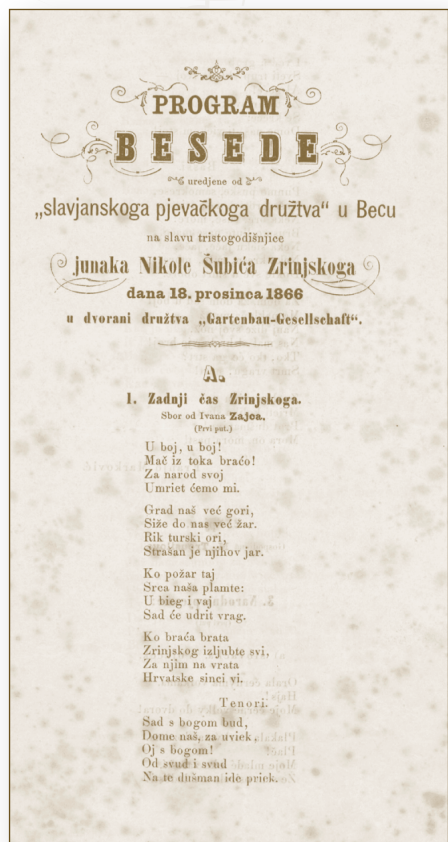 PROGRAM
BESEDE
uredjene od
„slavjanskoga pjevačkoga družtva“ u Becu
na slavu tristogodišnjice
junaka Nikole Šubića Zrinjskoga
dana 18. prosinca 1866
u dvorani družtva „Gartenbau-Gesellschaft“.
A.
1. Zadnji čas Zrinjskoga.
Sbor od Ivana Zajca.
(Prvi put.)
U boj, u boj!
Mač iz toka braćo!
Za narod svoj
Umriet ćemo mi.
Grad naš već gori,
Siže do nas već žar.
Rik turski ori,
Strašan je njihov jar.
Ko požar taj
Srca naša plamte:
U bieg i vaj
Sad će udrit vrag.
Ko braća brata
Zrinjskog izljubte svi,
Za njim na vrata
Hrvatske sinci vi.
Tenori.
Sad s bogom bud,
Dome naš, za uviek,
Oj s bogom!
Od svud i svud
Na te dušman ide priek.